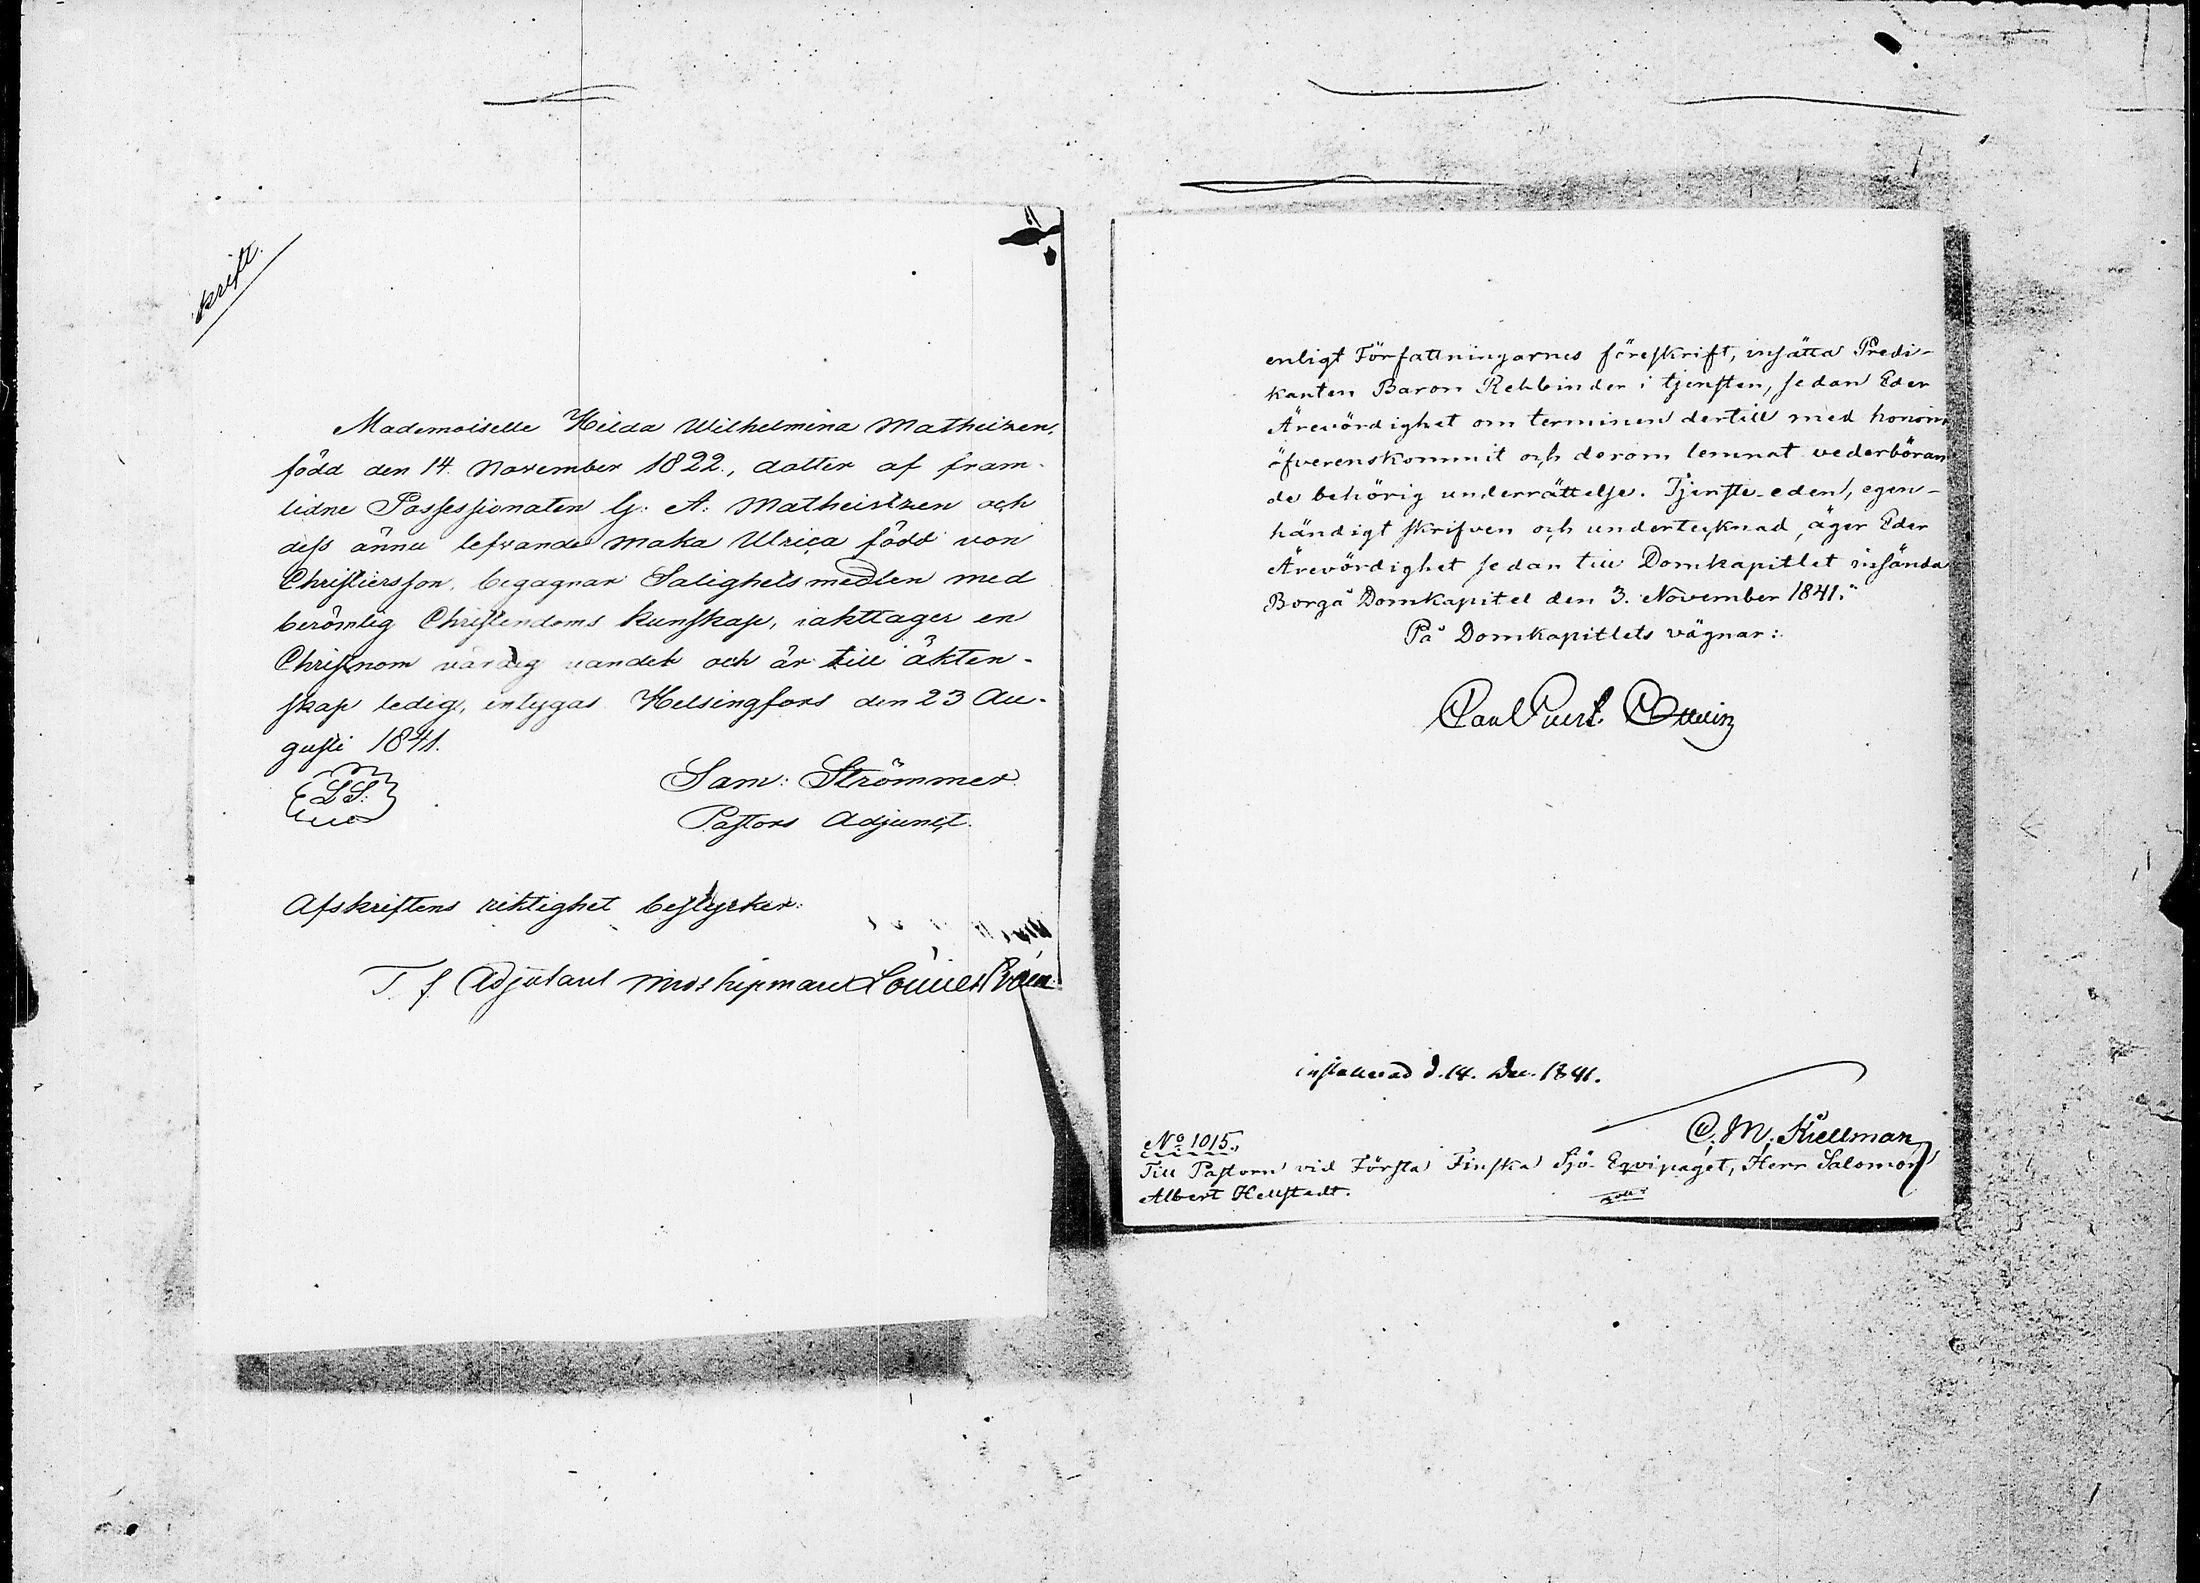 krift.
Mademoiselle Hilda Wilhelmina Matheizen,
född den 14. November 1822., dotter af fram-
lidne Possessionaten G: A: Matheiszen och
dess ännu lefvande maka Ulrica född von
Christiersson, begagnar Salighets medlen med
berömlig Christendoms kunskap, iakttager en
Christnom värdig vandel och är till äkten-
skap ledig, intygas Helsingfors den 23 Au-
gusti 1841.
L S:
Sam: Strömmer.
Pastors Adjunct.
Afskriftens riktighet bestyrker:
T. f. Adjutant midshipman
enligt Författningarnes föreskrift, insätta Predi-
kanten Baron Rehbinder i tjensten, sedan Eder
Ärevördighet om terminen dertill med honom
öfverenskommit och derom lemnat vederböran
de behörig underrättelse. Tjenste-eden, egen-
händigt skrifven och undertecknad, äger Eder
Ärevördighet sedan till Domkapitlet insända
Borgå Domkapitel den 3. November 1841.
På Domkapitlets vägnar:
installerad d. 14. Dec. 1841.
C. M. Kiellman
No 1015.
Till Pastorn vid Första Finska Sjö-Eqvipaget, Herr Salomon
Albert Hellstedt.